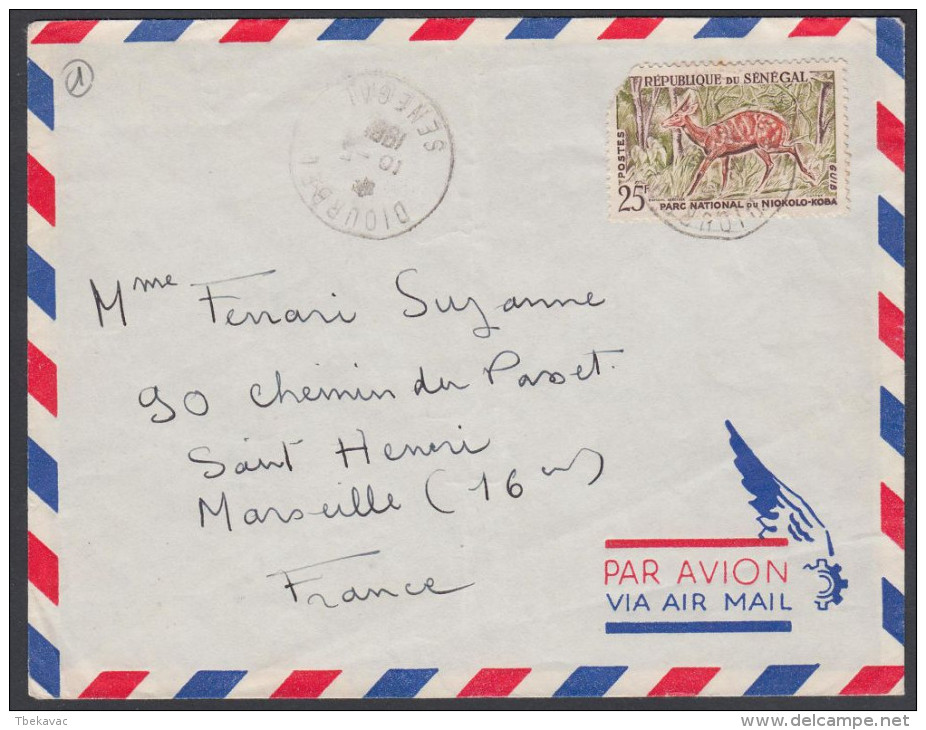 1
RÉPUBLIQUE DU SÉNÉGAL
POSTES
GUIB
25F
PARC NATIONAL DU NIOKOLO-KOBA
DIOURBEL
SENEGAL
10
Mme Ferrari Suzanne
90 chemin du Passet
Saint Henri
Marseille (16
France
PAR AVION
VIA AIR MAIL
Tbekavac
www.delcampe.net